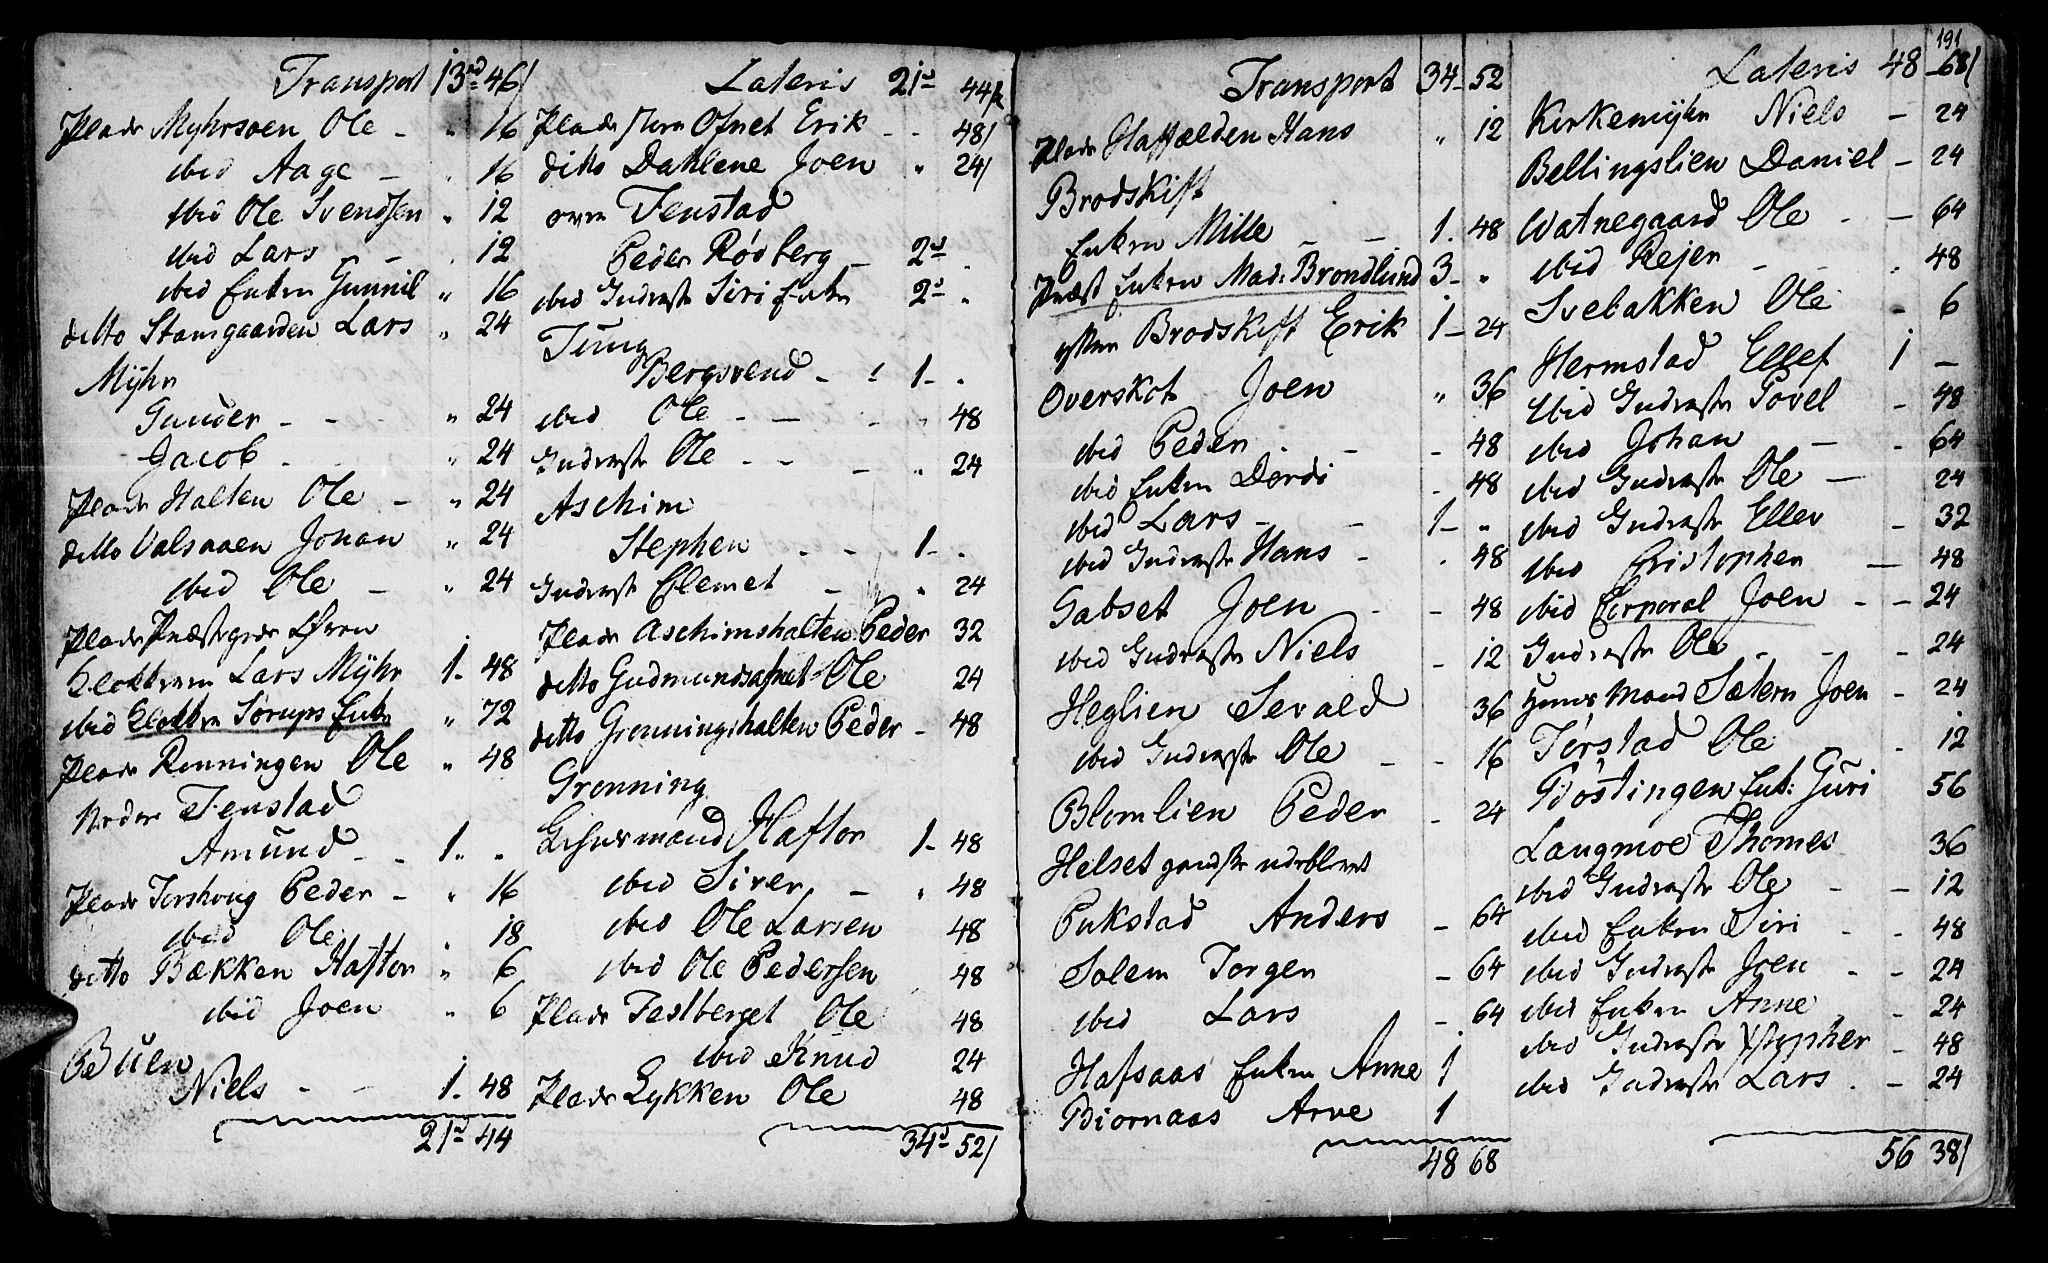 Transport 13rd 46/
Plads Myhrsoen Ole - " 16
ibid Aage - " 16
ibid Ole Svendsen " 12
ibid Lars - - " 12
ibid Enken Gunnil " 16
ditto Stamgaarden Lars " 24
Myhr
Gunder - - - " 24
Jacob - " 24
Plads Halten Ole - " 24
ditto Valsaaen Johan " 24
ibid Ole - " 24
Plads Præstegrds Øvren
Klokkeren Lars Myhr 1. 48
ibid Klokker Sorups Enke " 72
Plads Rønningen Ole " 48
Neder Fenstad
Amund - - 1. "
Plads Torshoug Peder - " 16
ibid Ole " 18
ditto Bækken Haftor " 6
ibid Joen " 6
Buen
Niels - - 1. 48
21rd 44
Lateris 21rd 44/
Plads Ofnet Erik - - 48/
ditto Dahlene Joen " 24/
over Fenstad
Peder Rødberg - 2rd "
ibid Inderste Siri Enke 2rd "
Tung
Bergsvend - 1- "
ibid Ole - - - " 48
Inderste Ole - - - " 24
Aschim
Stephen - - 1- "
Inderste Clemet - " 24
Plads Aschimshalten Peder 32
ditto Gudmundsafnet Ole 24
ditto Grønningshalten Peder - 48
Grønning
Haftor 1- 48
ibid Siver - " 48
ibid Ole Larsen 48
ibid Ole Pedersen 48
Plads Testberget Ole 48
ibid Knud 24
Plads Lykken Ole 48
34rd 52/
Transport 34- 52
Plads Haffælden Hans " 12
Brodskift
Enken Mille - - 1. 48
Præst Enken Mad: Brondlund 3- "
Brodskift Erik 1- 24
Overskot Joen " 36
ibid Peder - - 48
ibid Enken Dordi - 48
ibid Lars - - 1- "
ibid Inderste Hans - - 48
Gabset Joen - - 48
ibid Inderste Niels - 12
Heglien Sevald 36
ibid Inderste Ole - - 16
Blomlien Peder - 24
Helset gandske udeblevet
Pukstad Anders - 64
Solem Jorgen - 64
ibid Lars - 64
Hafsaas Enken Anne 1
Biornaas Arve 1
48 68
191
Lateris 48 - 68/
Kirkemyhr Niels - 24
Bellingslien Daniel - 24
Watnegaard Ole - - 64
ibid Rejer - - - 48
Svebakken Ole - 6
Hermstad Ellef 1 -
ibid Inderste Povel - 48
ibid Johan - - 64
ibid Inderste Ole - 24
ibid Inderste Ellev - 32
ibid Cristopher - 48
ibid Corporal Joen - - 24
Inderste Ole - - - 24
Huus Mand Sætern Joen - 24
Torstad Ole - 12
Røstingen Enk: Guri 56
Langmoe Thomes 36
ibid Inderste Ole - - 12
ibid Enken Siri - - 48
ibid Inderste Joen - - 24
ibid Enken Anne - 24
ibid Inderste Xstopher - 48
ibid Inderste Lars - - 24
56 38/